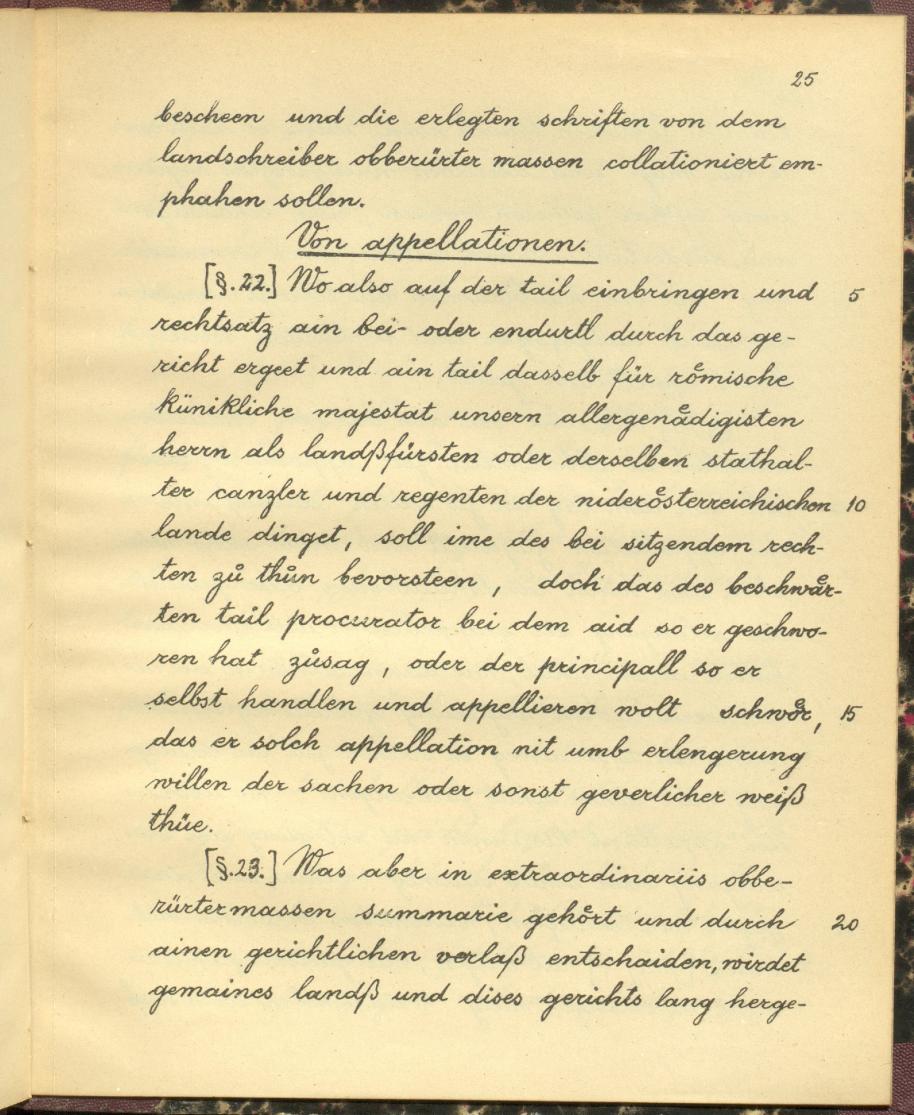 25
bescheen und die erlegten schriften von dem
landschreiber obberürter massen collationiert em-
phahen sollen.
Von appellationen.
[§.22.] Wo also auf der tail einbringen und 5
rechtsatz ain bei- oder endurtl durch das ge-
richt ergeet und ain tail dasselb für roͤmische
künikliche majestat unsern allergenaͤdigisten
herrn als landßfürsten oder derselben stathal-
ter canzler und regenten der nideroͤsterreichischen 10
lande dinget, soll ime des bei sitzendem rech-
ten zů thůn bevorsteen, doch das des beschwaͤr-
ten tail procurator bei dem aid so er geschwo-
ren hat zůsag, oder der principall so er
selbst handlen und appellieren wolt schwoͤr, 15
das er solch appellation nit umb erlengerung
willen der sachen oder sonst geverlicher weiß
thüe.
[§.23.] Was aber in extraordinariis obbe-
rürtermassen summarie gehoͤrt und durch 20
ainen gerichtlichen verlaß entschaiden, wirdet
gemaines landß und dises gerichts lang herge-